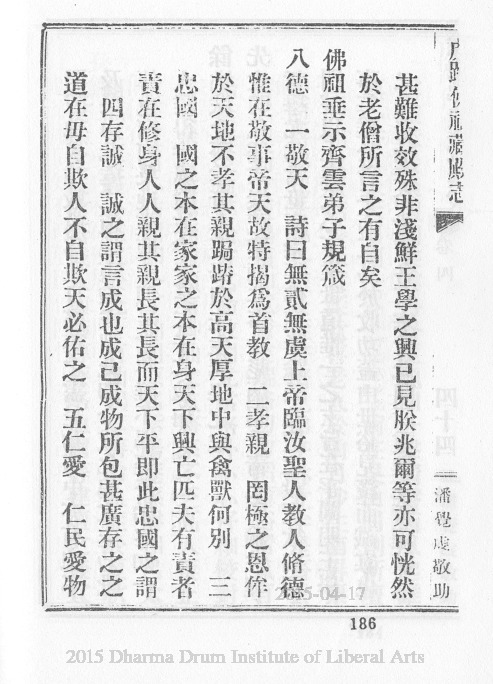 卷四
四十四
潘覺虛敬助
甚難收效殊非淺鮮王學之興已見朕兆爾等亦可恍然
於老僧所言之有自矣
佛祖垂示齊雲弟子規箴
八德　一敬天　詩曰無貳無虞上帝臨汝聖人教人脩德
惟在敬事帝天故特揭爲首教　二孝親　罔極之恩侔
於天地不孝其親跼蹐於高天厚地中與禽獸何別　三
忠國　國之本在家家之本在身天下興亡匹夫有責者
責在修身人人親其親長其長而天下平即此忠國之謂
四存誠　誠之謂言成也成己成物所包甚廣存之之
道在毋自欺人不自欺天必佑之　五仁愛　仁民愛物
2015-04-17
186
2015 Dharma Drum Institute of Liberal Arts